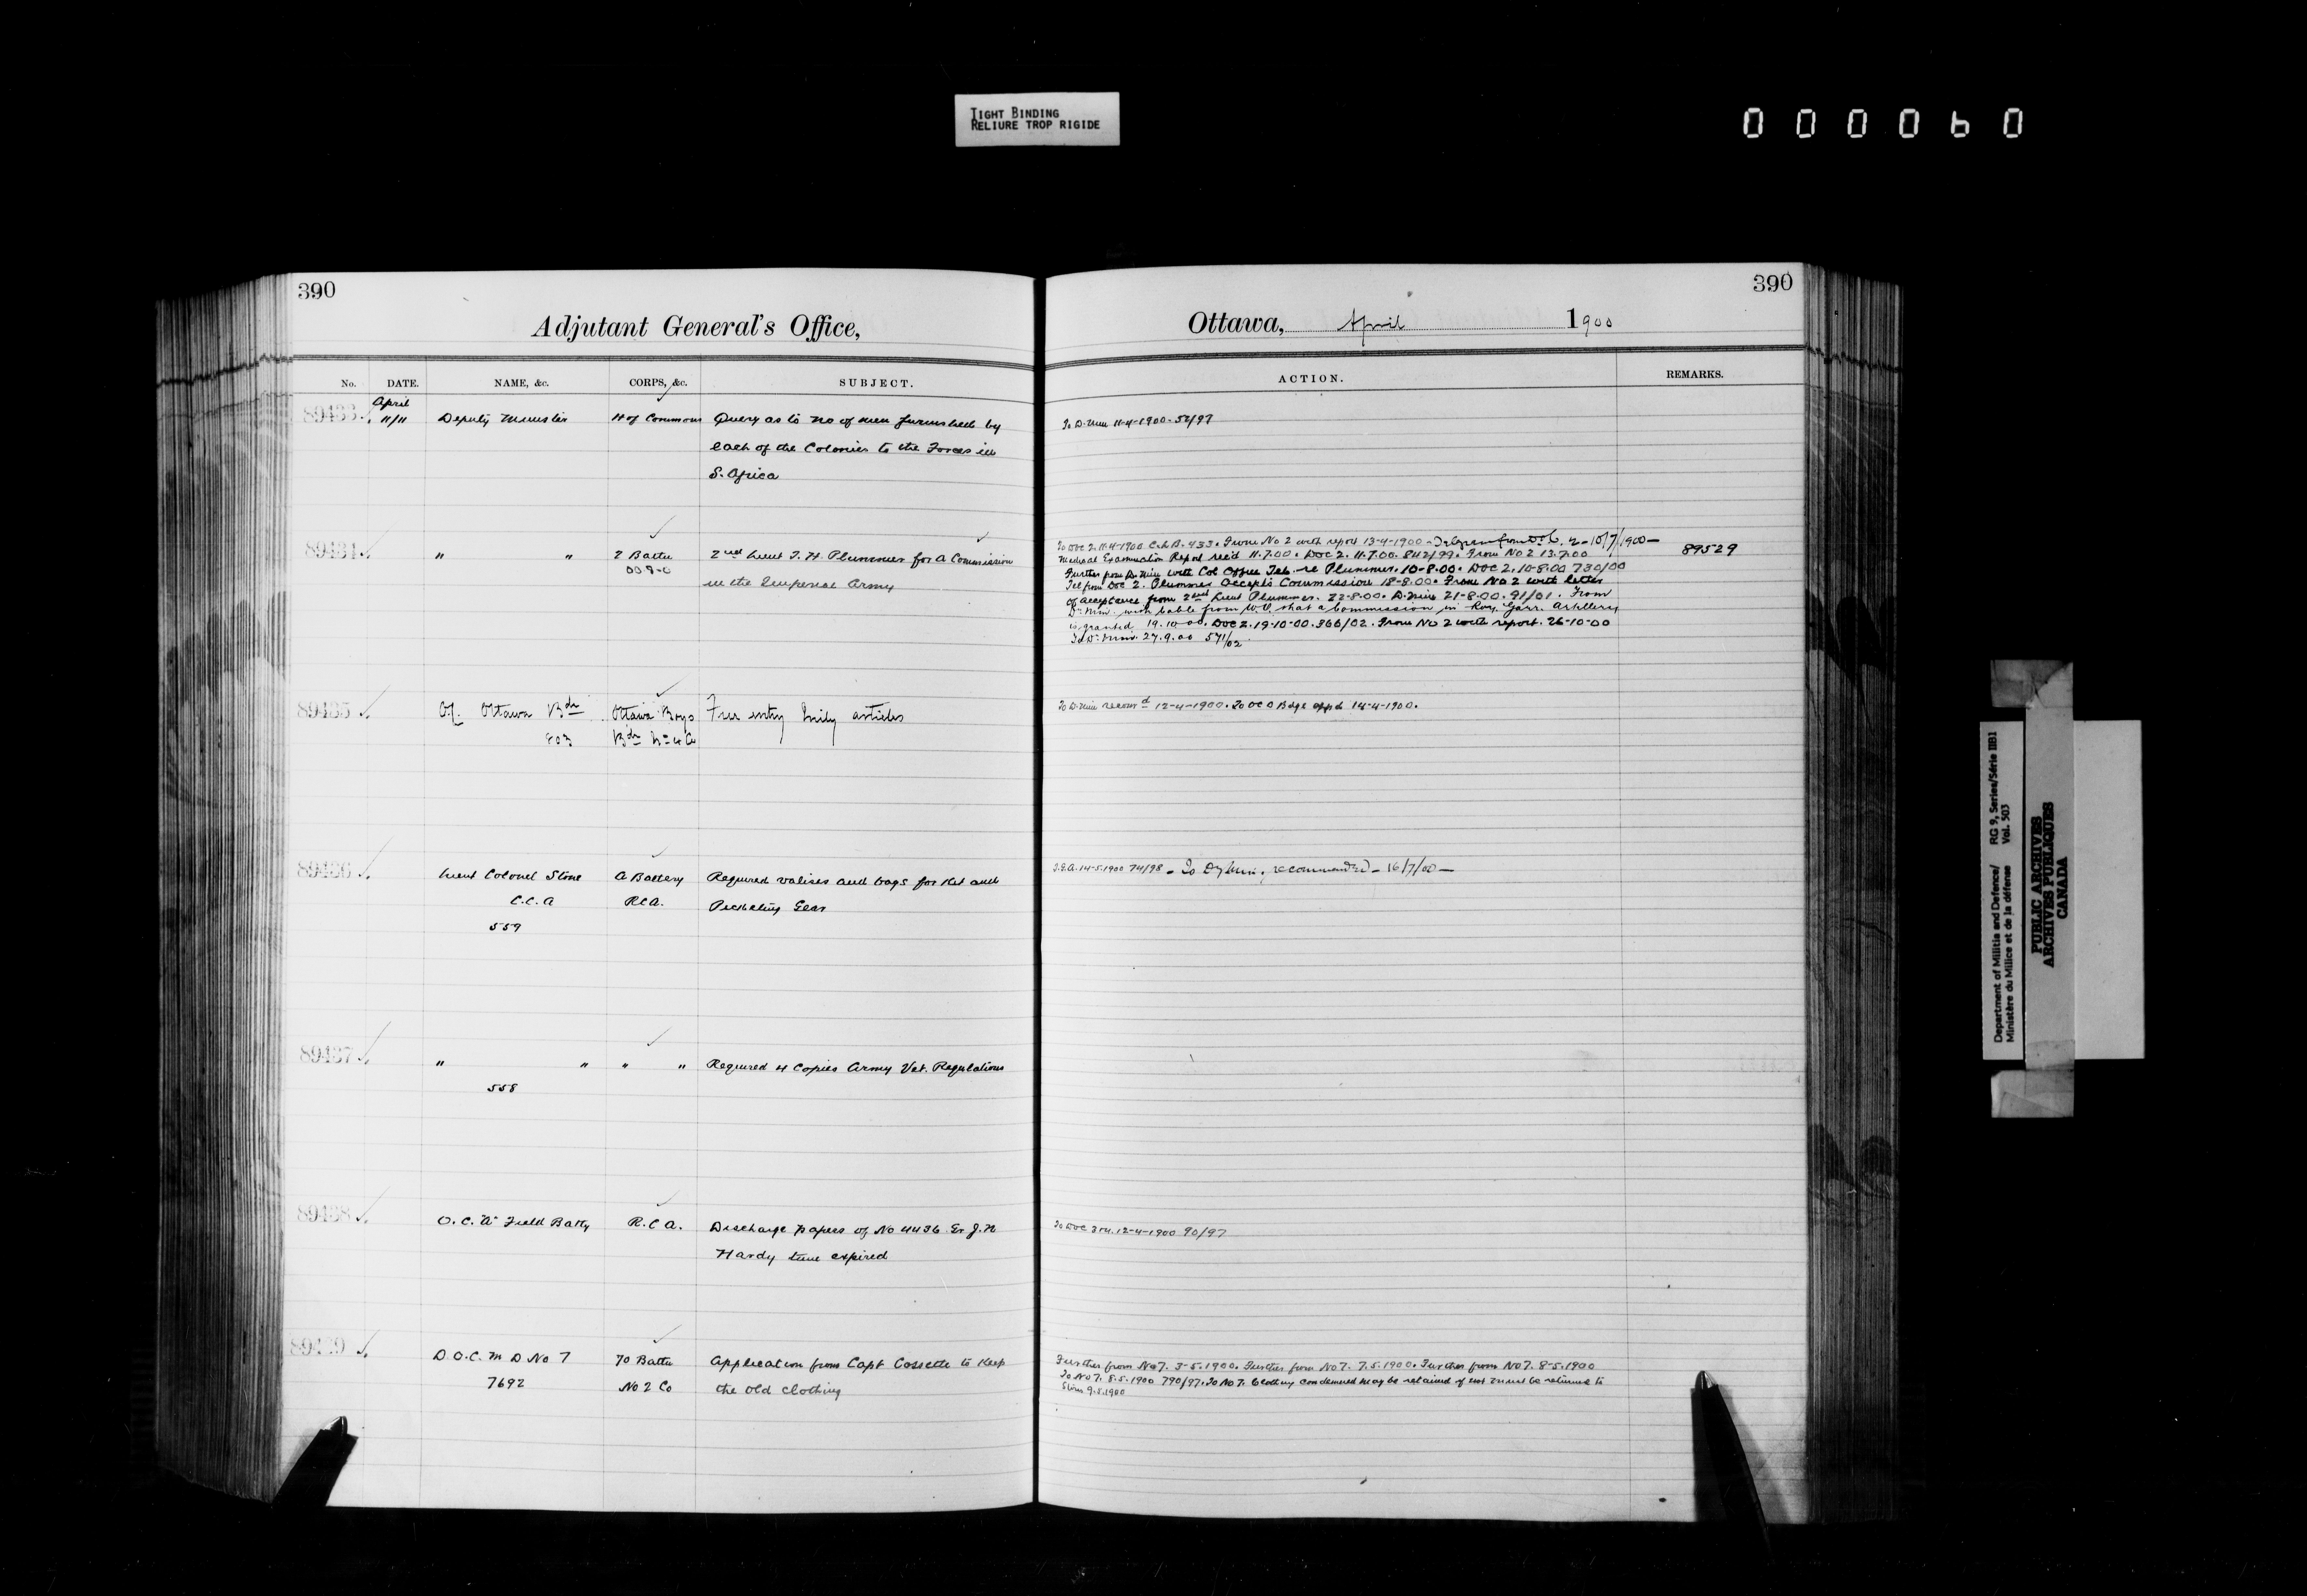 TIGHT BINDING
RELIURE TROP RIGIDE
000060
390
Adjutant General's Office,
No. DATE. NAME, &c. CORPS, &c. SUBJECT.
April
89433 11/11 Deputy Minister H of Commons Query as to no of men furnished by
each of the Colonies to the Forces in
S. Africa
89434 " " 2 Battn 2nd Lieut T. H. Plummer for a Commission
in the Imperial Army
89435 Ottawa Bde Ottawa Boys Free entry articles
803 Bde
89436 Lieut Colonel Stone A Battery Required valises and bags for Kit and
C.C.A R.C.A. Picketing Gear
559
89437 " " " " Required 4 copies Army Vet. Regulations
558
89438 O.C. "A" Field Batty R.C.A. Discharge papers of No 4436 Gr J. H
Hardy time expired
89439 D.O.C. M D No 7 70 Battn Application from Capt Cossette to keep
7692 No 2 Co the old clothing
390
Ottawa, April 1900
ACTION. REMARKS.
To D. Min 11-4-1900. 54/97
To DOC 2. 11-4-1900 C.L.B. 433. From No 2 with report 13-4-1900 - Telegram from D.O.C. 2 - 10/7/1900 -
Medical Examination Report rec'd 11.7.00. DOC 2. 11.7.00. 842/99. From No 2 13.7.00 89529
Further from D. Min with Col Office Tel. re Plummer. 10-8.00. DOC 2. 10-8.00 730/00
Tel from DOC 2. Plummer accepts Commission 18-8.00. From No 2 with letter
of acceptance from 2nd Lieut Plummer. 22-8.00. D. Min 21-8.00. 91/01. From
D. Min. with cable from W.O. that a Commission in Roy. Garr. Artillery
is granted 19.10.00. DOC 2. 19-10-00. 366/02. From No 2 with report. 26-10-00
To D. Min. 27.9.00 571/02
To D. Min recomd 12-4-1900. To OC O Bdge appd 14-4-1900.
14-5-1900 74/98 - To Dy Min; recommended - 16/7/00 -
To DOC 3 & 4. 12-4-1900 90/97
Further from No 7. 3-5.1900. Further from No 7. 7.5.1900. Further from No 7. 8-5.1900
To No 7. 8.5.1900 790/97. To No 7. Clothing condemned may be retained if not must be returned to
Stores 9.5.1900
Department of Militia and Defence/ RG 9, Series/Série IIB1
Ministère du Milice et de la défense Vol. 503
PUBLIC ARCHIVES
ARCHIVES PUBLIQUES
CANADA